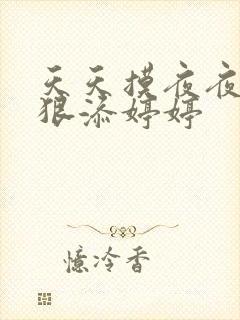 天天摸夜夜
狠添婷婷
憶冷香